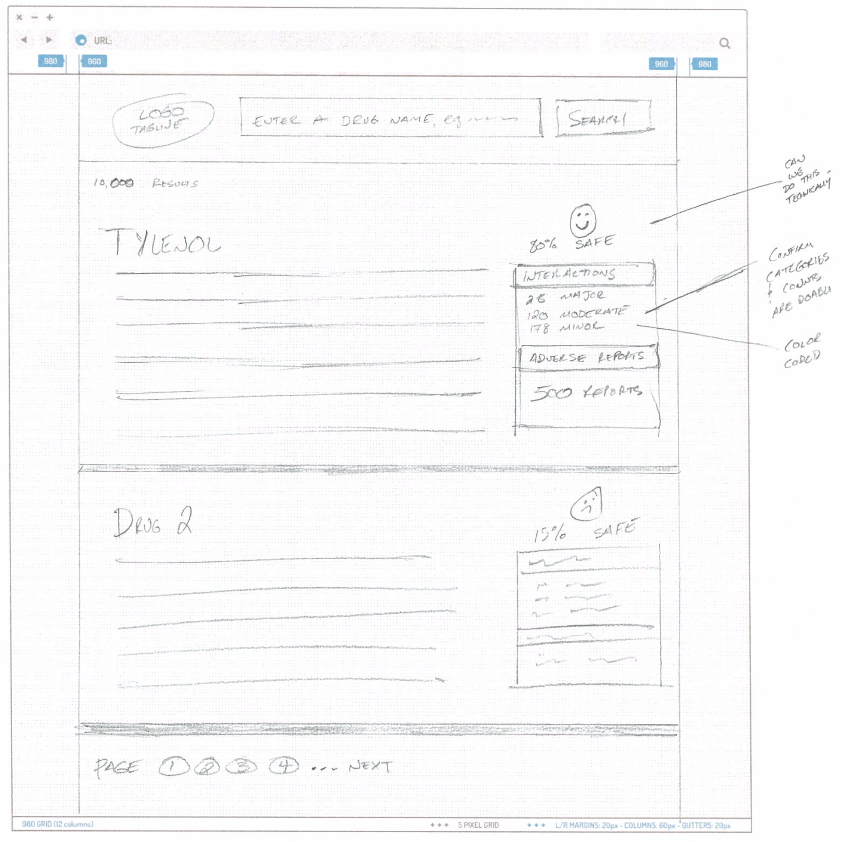 URL:
960
960
960
960
LOGO
TAGLINE
ENTER A DRUG NAME, eg
SEARCH
10,000 RESULTS
CAN
WE
DO THIS -
TYLENOL
80% SAFE
INTERACTIONS
28 MAJOR
120 MODERATE
178 MINOR
ADVERSE REPORTS
500 REPORTS
CONFIRM
CATEGORIES
+ COUNTS
ARE DOABLE
COLOR
CODED
DRUG 2
15% SAFE
PAGE 1 2 3 4 ... NEXT
960 GRID (12 columns)
+++ 5 PIXEL GRID
+++ L/R MARGINS: 20px - COLUMNS: 60px - GUTTERS: 20px